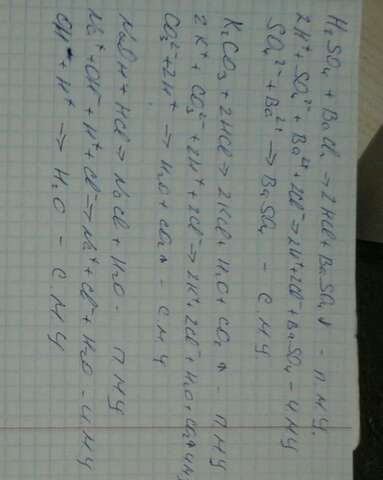 H₂SO₄ + BaCl₂ → 2HCl + BaSO₄↓ - П.М.У.
2H⁺ + SO₄²⁻ + Ba²⁺ + 2Cl⁻ → 2H⁺ + 2Cl⁻ + BaSO₄ - И М У
SO₄²⁻ + Ba²⁺ → BaSO₄ - С.М.У.
K₂CO₃ + 2HCl → 2KCl + H₂O + CO₂↑ - П.М.У
2K⁺ + CO₃²⁻ + 2H⁺ + 2Cl⁻ → 2K⁺, 2Cl⁻ + H₂O + CO₂↑ И М У
CO₃²⁻ + 2H⁺ → H₂O + CO₂↑ - С М У
NaOH + HCl → NaCl + H₂O - П М У
Na⁺ + OH⁻ + H⁺ + Cl⁻ → Na⁺ + Cl⁻ + H₂O - И М У
OH⁻ + H⁺ → H₂O - С. М У